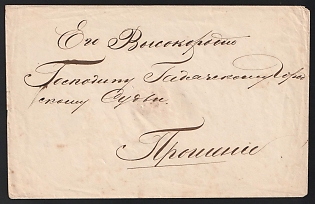 Его Высокородію
Господину Гадячскому Город
скому Судьи.
Прошеніе